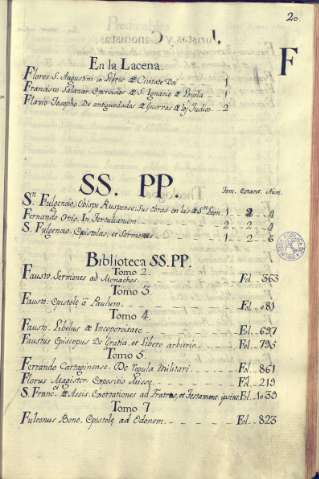 20.
F
En la Lacena.
Flores S. Augustini de Civitate Dei 1
Francisco Salazar Exercicios de S. Ignacio de Loiola 1
Flavio Josepho De antiguedades de Guerras de los Judios 2
SS. PP.
Tom. Estant. Num.
Sn. Fulgencio, Obispo Ruspense; Sus obras en las de Sn. 1 2 9
Fernando Oris. In Tertulianum 2 2 9
S. Fulgencio. Epistolas, et Sermones 1 2 6
Biblioteca SS. PP.
Tomo 2.
Fausto. Sermones ad Monachos. Fol. 563
Tomo 3.
Fausti. Epistola a Paulino. Fol. 81
Tomo 4.
Fausti. Libellus de Incoporeitate Fol. 697
Faustus Episcopus De Gratia, et Libero arbitrio. Fol. 795
Tomo 5.
Ferrando Cartaginense. De regula Militari Fol. 861
Florus Magister Exposicio Missae Fol. 219
S. Franc.o de Assis. Exortationes ad Fratres, et Testamento Fol. 1039
Tomo 7.
Fulconus Bono. Epistola ad Edonem. Fol. 823